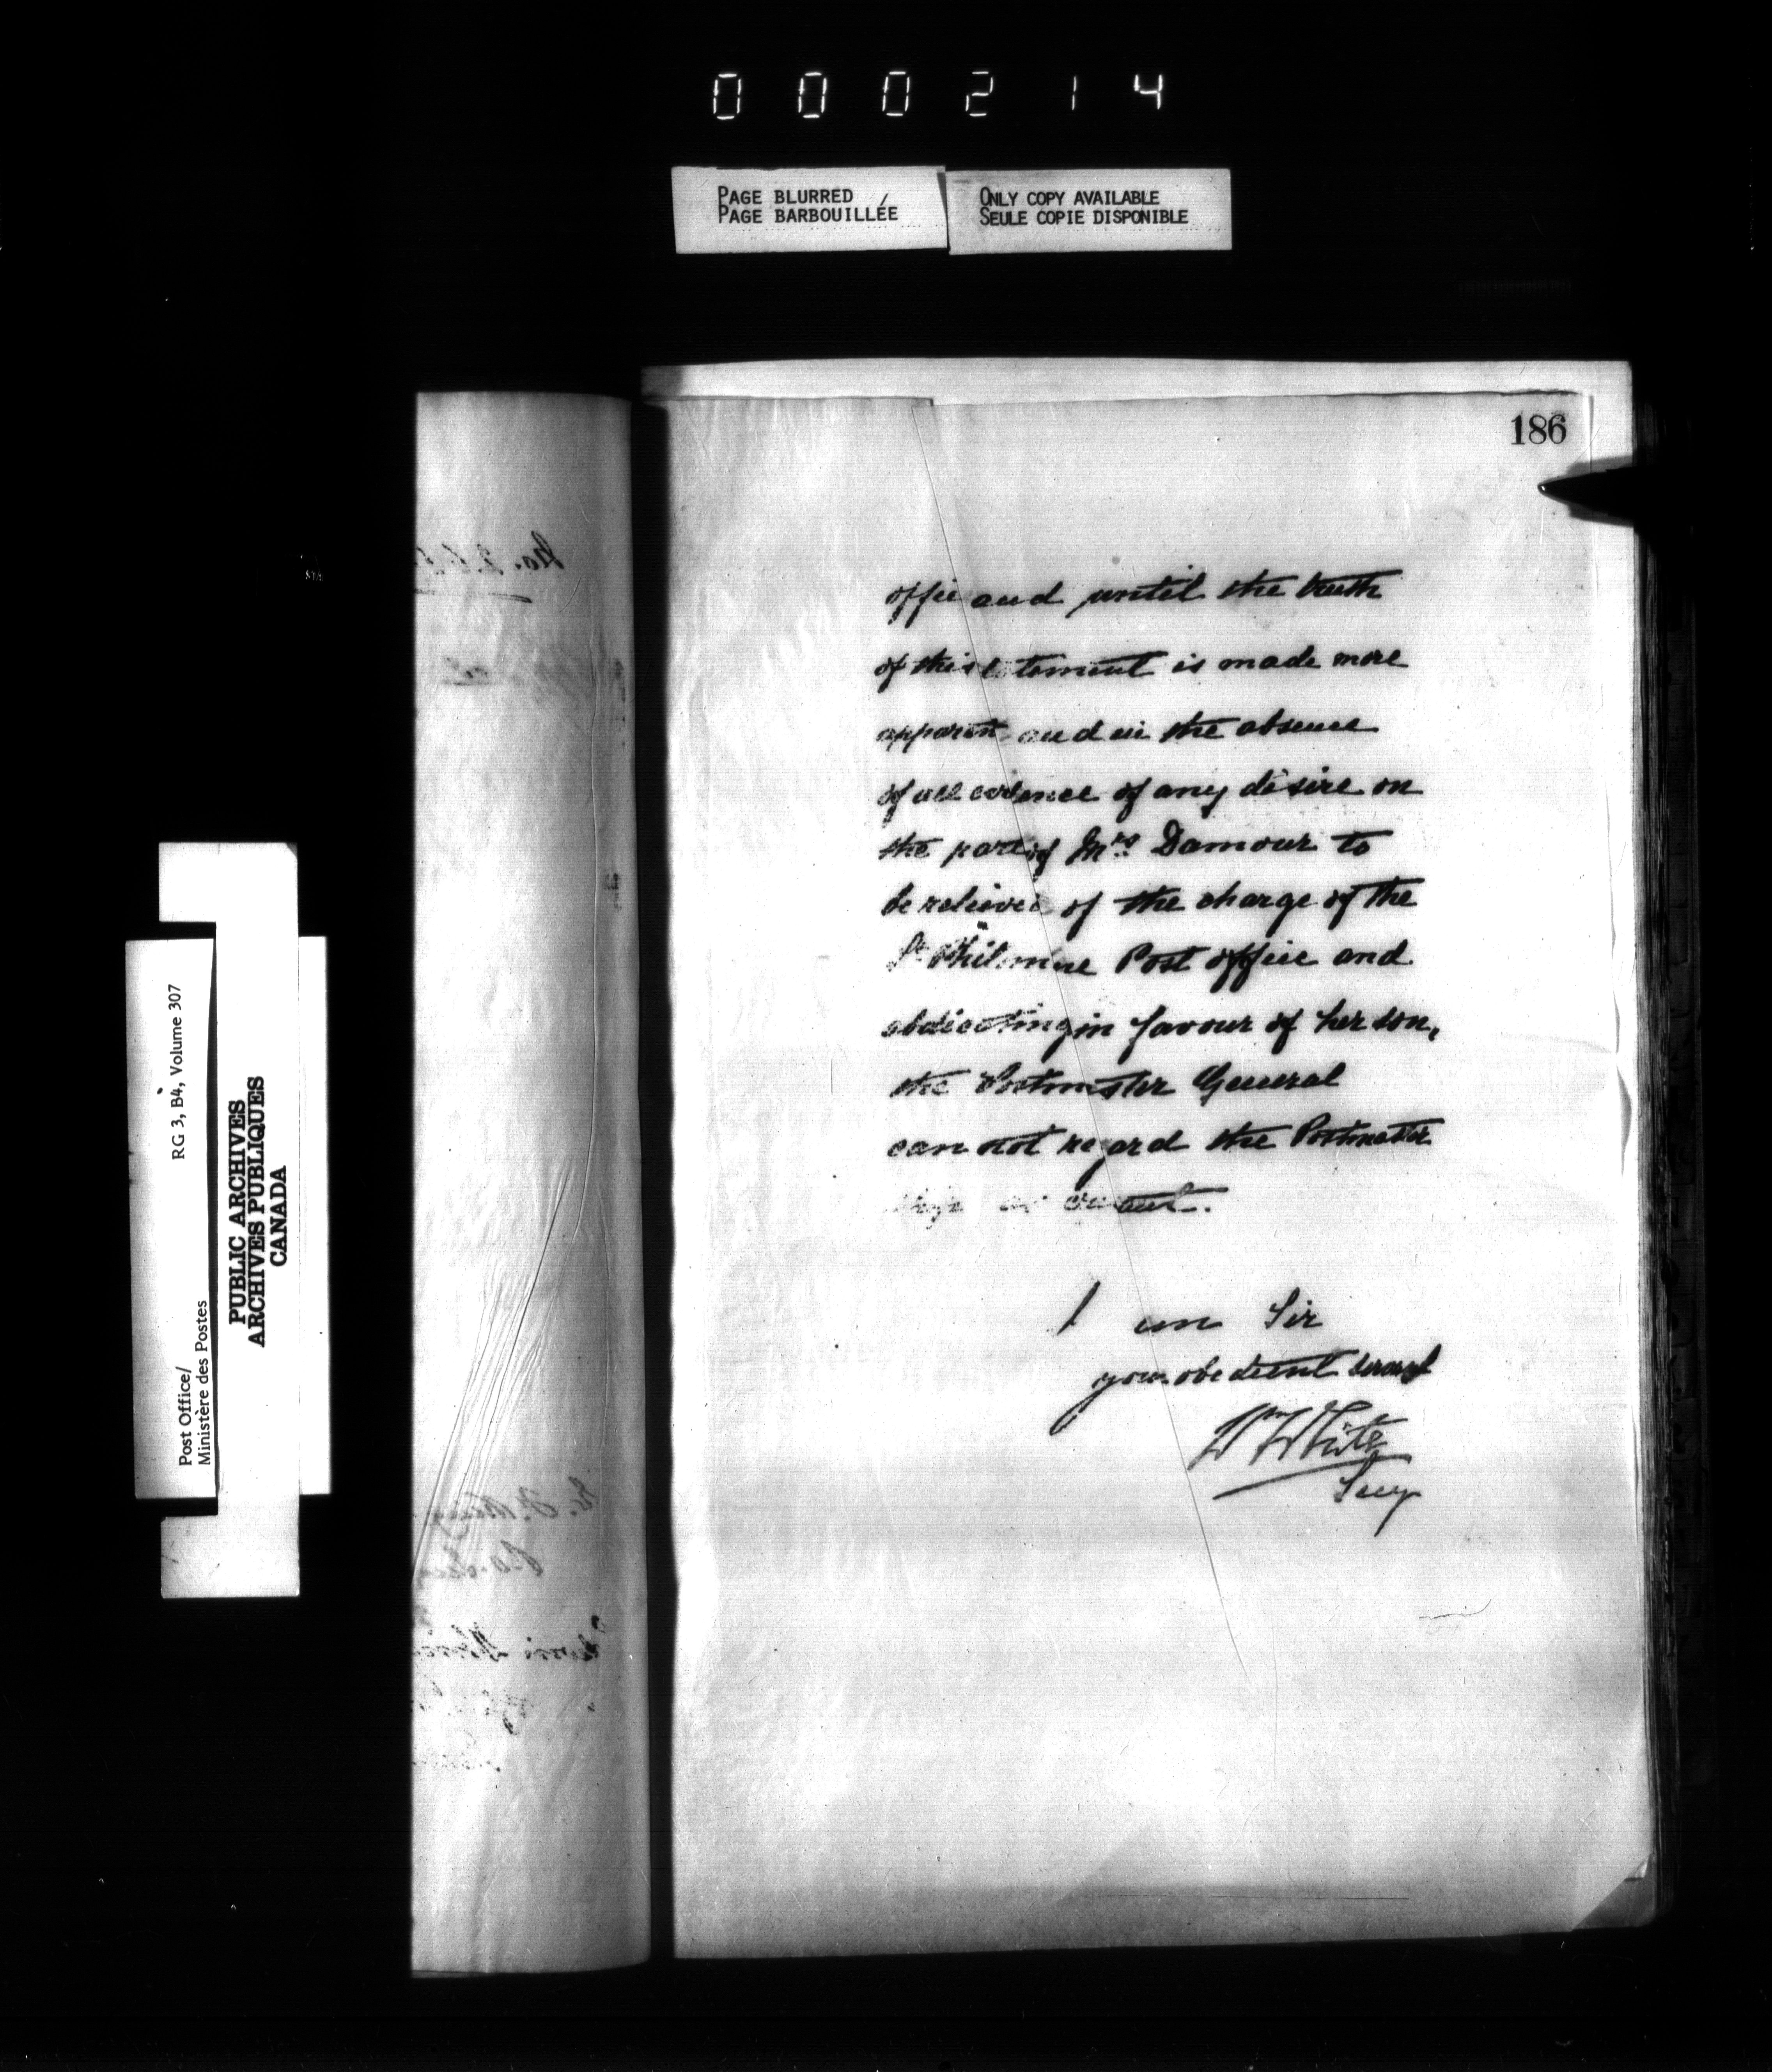 000214
PAGE BLURRED
PAGE BARBOUILLÉE
ONLY COPY AVAILABLE
SEULE COPIE DISPONIBLE
186
office and until the truth
of this statement is made more
apparent and in the absence
of all evidence of any desire on
the part of Mrs. Damour to
be relieved of the charge of the
St. Philomene Post office and
abdicating in favour of her son,
the Postmaster General
can not regard the Postmaster
ship as vacant.
I am Sir
your obedient servant
Wm White
Secy
RG 3, B4, Volume 307
Post Office/
Ministère des Postes
PUBLIC ARCHIVES
ARCHIVES PUBLIQUES
CANADA
No.